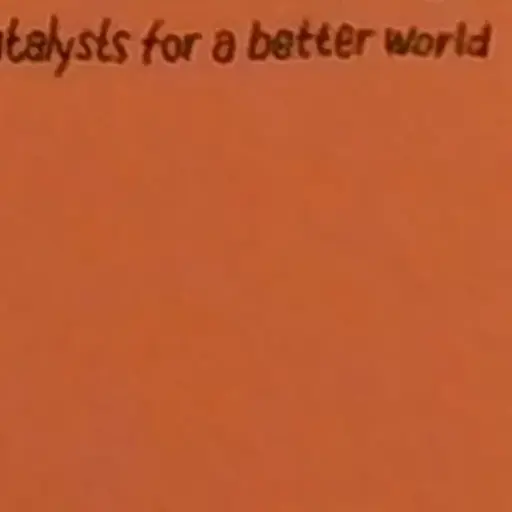 talysts for a better world